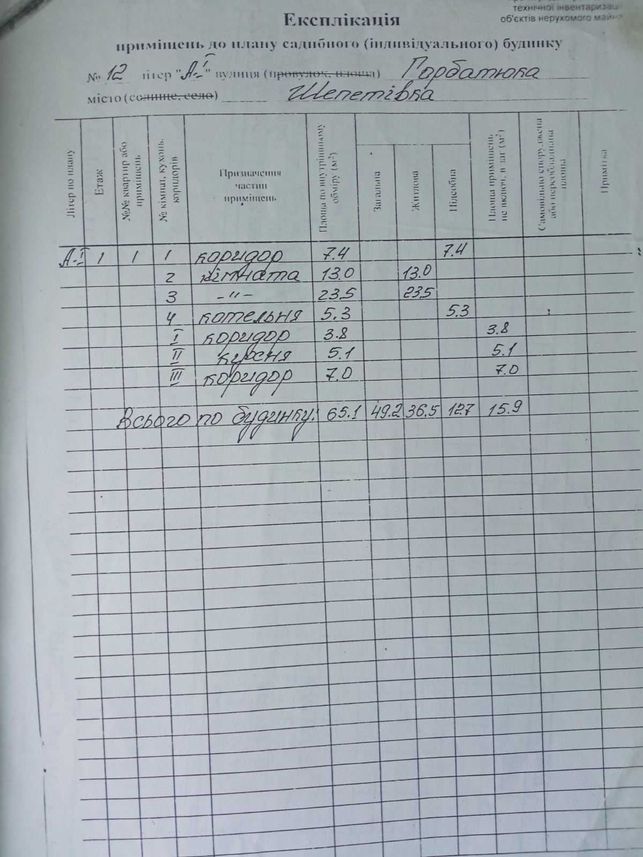 технічної інвентаризац
об'єктів нерухомого майна
Експлікація
приміщень до плану садибного (індивідуального) будинку
№ 12 літер "А-I" вулиця (провулок, площа) Горбатюка
місто (селище, село) Шепетівка
Літер по плану Етаж №№ квартир або приміщень № кімнат, кухонь, коридорів Призначення частин приміщень Площа по внутрішньому обміру (м²) Загальна Житлова Підсобна Площа приміщень, не включ. в заг (м²) Самовільно споруджена або переобладнана площа Примітка
А-I 1 1 1 коридор 7.4 7.4
2 кімната 13.0 13.0
3 -"- 23.5 23.5
4 котельня 5.3 5.3
I коридор 3.8 3.8
II кухня 5.1 5.1
III коридор 7.0 7.0
Всього по будинку: 65.1 49.2 36.5 127 15.9